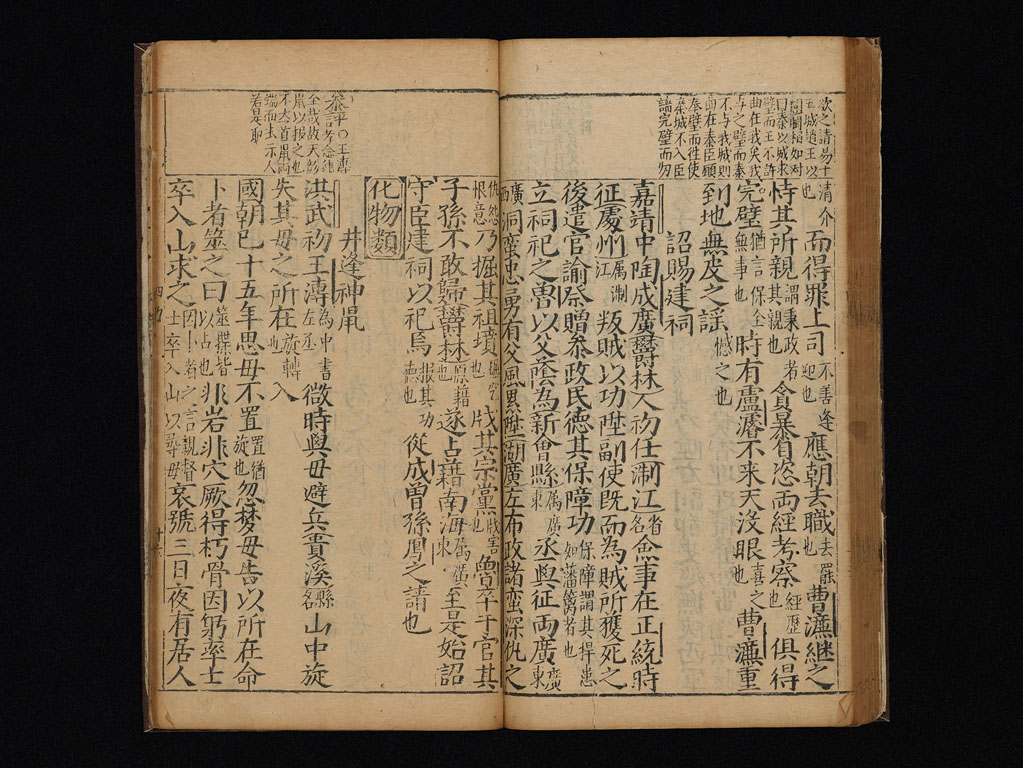 欲之請易十
五城趙王以
問藺相如对
曰秦以城求
璧而王不許
曲在我矣我
与之璧而秦
不与我城則
曲在秦臣願
奉璧而徃使
秦城不入臣
請完璧而
清介也而得罪上司不善逢迎也應朝去職去罷也曹濂継之
恃其所親謂秉政者其親也貪暴自恣両經考察經歷也俱得
完璧猶言保全無事也時有盧濬不来天没眼喜之也曹濂重
到地無皮之謡憾之也
詔賜建祠
嘉靖中陶成廣欝林人初任浙江省名僉事在正統時
征處州属浙江叛賊以功陞副使既而為賊所獲死之
後遣官諭祭贈叅政民德其保障功保障謂其捍患如藩籬者也
立祠祀之魯以父蔭為新會縣属廣東丞與征両廣廣東
廣西洞蛮忠勇有父風累陞湖廣左布政諸蛮深仇之
叅評○王溥
孝念純
全哉故天彰
鼠以报之也
不夫首鼠両
端而去示人
若是耶
仇怨恨意乃掘其祖墳掘空也戕其宗黨戕害也魯卒于官其
子孫不敢歸欝林原籍也遂占籍南海属廣東至是始詔
守臣建祠以祀焉報其功德也從成曽孫鳳之請也
化物類
井逢神鼡
洪武初王溥為中書左丞微時與母避兵貴溪縣名山中旋
失其母之所在旋轉也入
國朝已十五年思母不置置猶旋也忽夢母告以所在命
卜者筮之曰筮揲蓍以占也非岩非穴厥得朽骨因躬率士
卒入山求之因卜者之言親督士卒入山以尋母哀號三日夜有居人